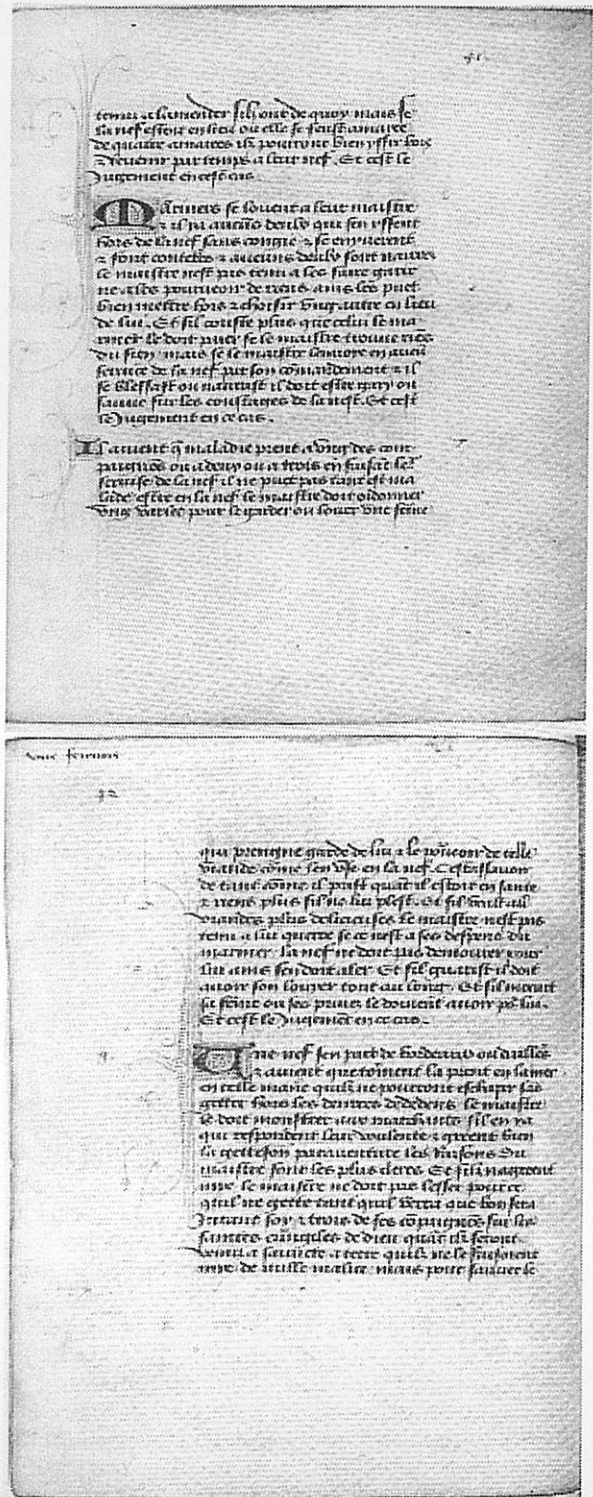 tenu a lamender silz ont de quoy mais se
la nef estoit en lieu ou elle se feust amaree
de quatre amarres ilz pourront bien yssir hors
& revenir par temps a leur nef. Et cest le
Jugement en cest cas.
Mariners se louent a leur maistre
& il ya aucuns deulx qui sen yssent
hors de la nef sans congie & se enyvrent
& font contens & aucuns deulx sont navres
le maistre nest pas tenu a les faire garir
ne a les pourveoir de riens ains les puet
bien mettre hors & choisir ung autre en lieu
de lui. Et sil couste plus que celui le ma
riner le doit paier se le maistre trouve riens
du sien mais se le maistre lenvoie en aucun
service de la nef par son comandement & il
se blessast ou navrast il doit estre gary ou
sauve sur les coustages de la nef. Et cest
le Jugement en ce cas.
Il avient q maladie prent a ung des com
paignons ou a deux ou a trois en faisāt le
servise de la nef il ne puet pas tant est ma
lade estre en la nef le maistre doit ordonner
ung varlet pour le garder ou louer une feme
92
qui prengne garde de lui & le pourveoir de telle
viande come len use en la nef. Cest assavoir
de tant come il prist quāt il estoit en sante
& riens plus sil ne lui plest. Et sil veult
viandes plus delicieuses le maistre nest pas
tenu a lui querre se ce nest a ses despens du
mariner la nef ne doit pas demourer pour
lui ains sen doit aler Et sil guarist il doit
avoir son louyer tout au long. Et sil mouroit
sa feme ou ses privez le doivent avoir po lui.
Et cest le Jugement en ce cas.
Une nef sen part de bordeaux ou dailleurs
& avient que torment la prent en la mer
en telle maniere quilz ne pourront eschaper sās
getter hors les denrees de dedens le maistre
le doit monstrer aux marchants sil en ya
qui respondent leur voulente & greent bien
la getteson par aventure les raisons du
maistre sont les plus cleres Et silz nagreent
mie le maistre ne doit pas lesser pour ce
quil ne gette tant quil verra que bon sera
Jurant soy & trois de ses cōpaignons sur les
saintes euvāgiles de dieu quāt ilz seront
venu a sauvete a terre quilz ne le faisoient
mie de nulle malice mais pour sauver le